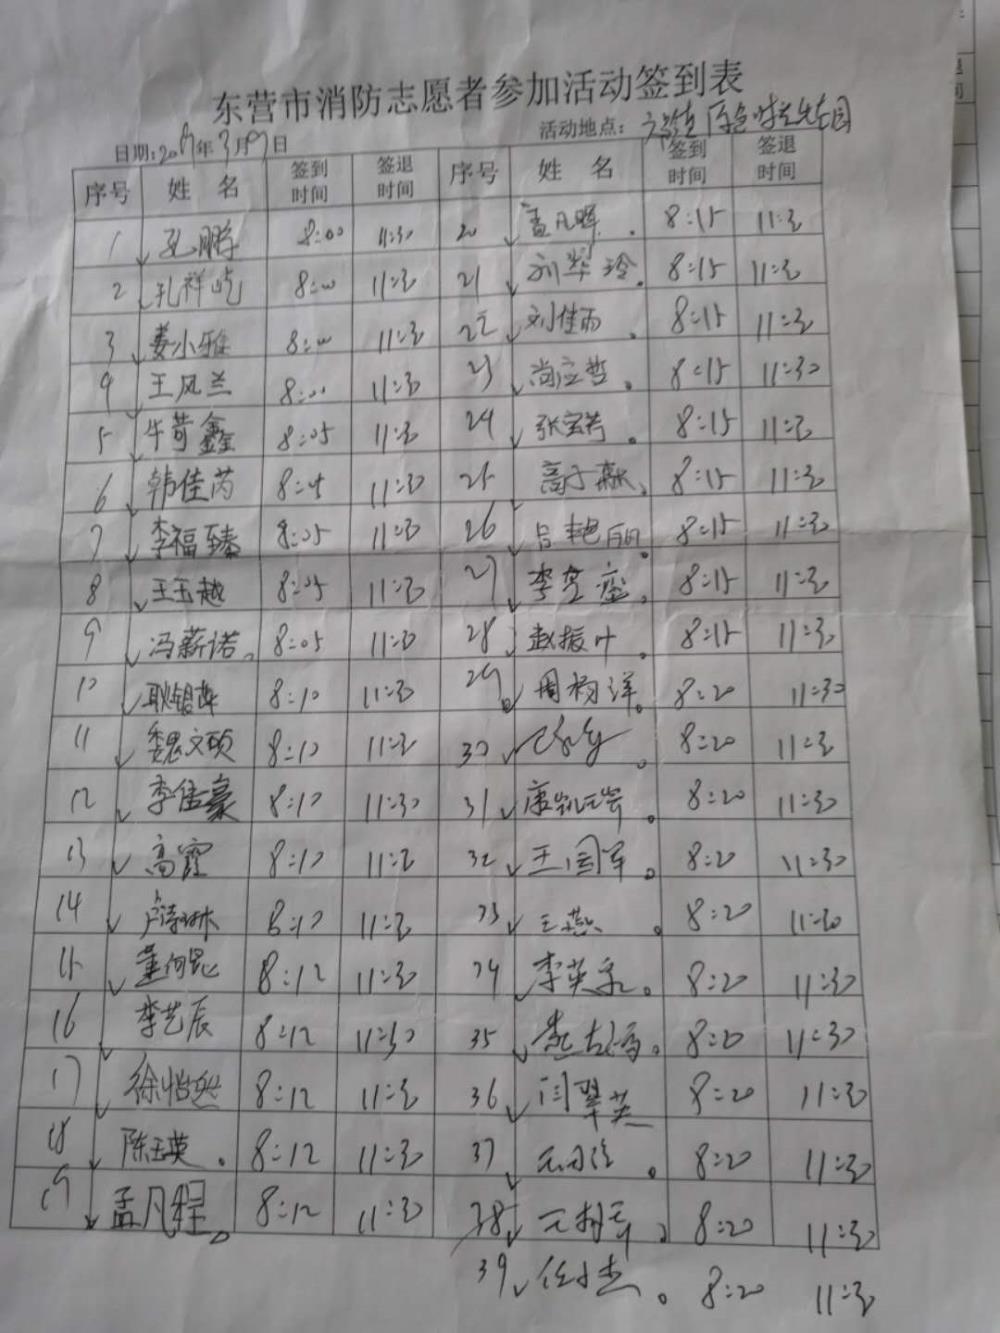 东营市消防志愿者参加活动签到表
日期:20 年3月9日 活动地点:
序号 姓 名 签到时间 签退时间 序号 姓 名 签到时间 签退时间
1 孔鹏 8:00 11:30 20 孟凡晖 8:15 11:30
2 孔祥屹 8:00 11:30 21 刘翠玲 8:15 11:30
3 姜小雅 8:00 11:30 22 刘佳雨 8:15 11:30
4 王凤兰 8:00 11:30 23 尚应哲 8:15 11:30
5 牛苛鑫 8:05 11:30 24 张宝芳 8:15 11:30
6 韩佳芮 8:05 11:30 25 高子森 8:15 11:30
7 李福臻 8:05 11:30 26 吕艳丽 8:15 11:30
8 王玉越 8:05 11:30 27 李 8:15 11:30
9 冯薪诺 8:05 11:30 28 赵振叶 8:15 11:30
10 耿银萍 8:10 11:30 29 周杨洋 8:20 11:30
11 魏文硕 8:10 11:30 30 8:20 11:30
12 李信豪 8:10 11:30 31 8:20 11:30
13 高霞 8:10 11:30 32 王国军 8:20 11:30
14 卢 琳 8:10 11:30 33 王燕 8:20 11:30
15 董何 8:12 11:30 34 李英 8:20 11:30
16 李艺辰 8:12 11:30 35 8:20 11:30
17 徐怡然 8:12 11:30 36 闫翠英 8:20 11:30
18 陈玉英 8:12 11:30 37 8:20 11:30
19 孟凡程 8:12 11:30 38 8:20 11:30
39 任小杰 8:20 11:30